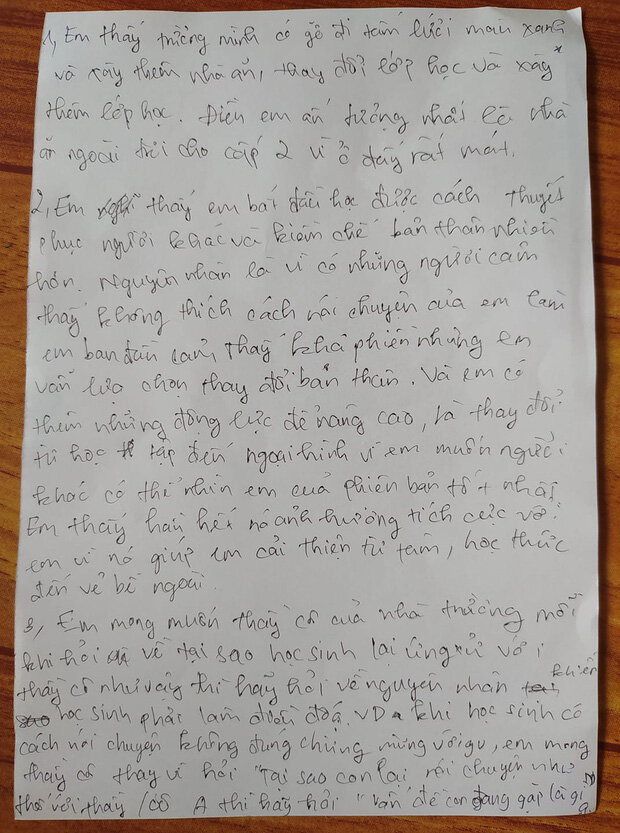 1, Em thấy trường mình có gỡ đi tấm lưới màu xanh
và xây thêm nhà ăn, thay đổi lớp học và xây
thêm lớp học. Điều em ấn tượng nhất là nhà
ăn ngoài trời cho cấp 2 vì ở đấy rất mát.
2, Em thấy em bắt đầu học được cách thuyết
phục người khác và kiềm chế bản thân nhiều
hơn. Nguyên nhân là vì có những người cảm
thấy không thích cách nói chuyện của em làm
em ban đầu cảm thấy khá phiền nhưng em
vẫn lựa chọn thay đổi bản thân. Và em có
thêm những động lực để nâng cao, là thay đổi
từ học tập đến ngoại hình vì em muốn người
khác có thể nhìn em của phiên bản tốt nhất
Em thấy hầu hết nó ảnh hưởng tích cực với
em vì nó giúp em cải thiện từ tâm, học thức
đến vẻ bề ngoài.
3, Em mong muốn thầy cô của nhà trường mỗi
khi hỏi về tại sao học sinh lại ứng xử với
thầy cô như vậy thì hãy hỏi về nguyên nhân khiến
học sinh phải làm điều đó. VD khi học sinh có
cách nói chuyện không đúng chừng mực với gv, em mong
thầy cô thay vì hỏi "Tại sao con lại nói chuyện như
thế với thầy /cô A thì hãy hỏi "vấn đề con đang gặp là gì